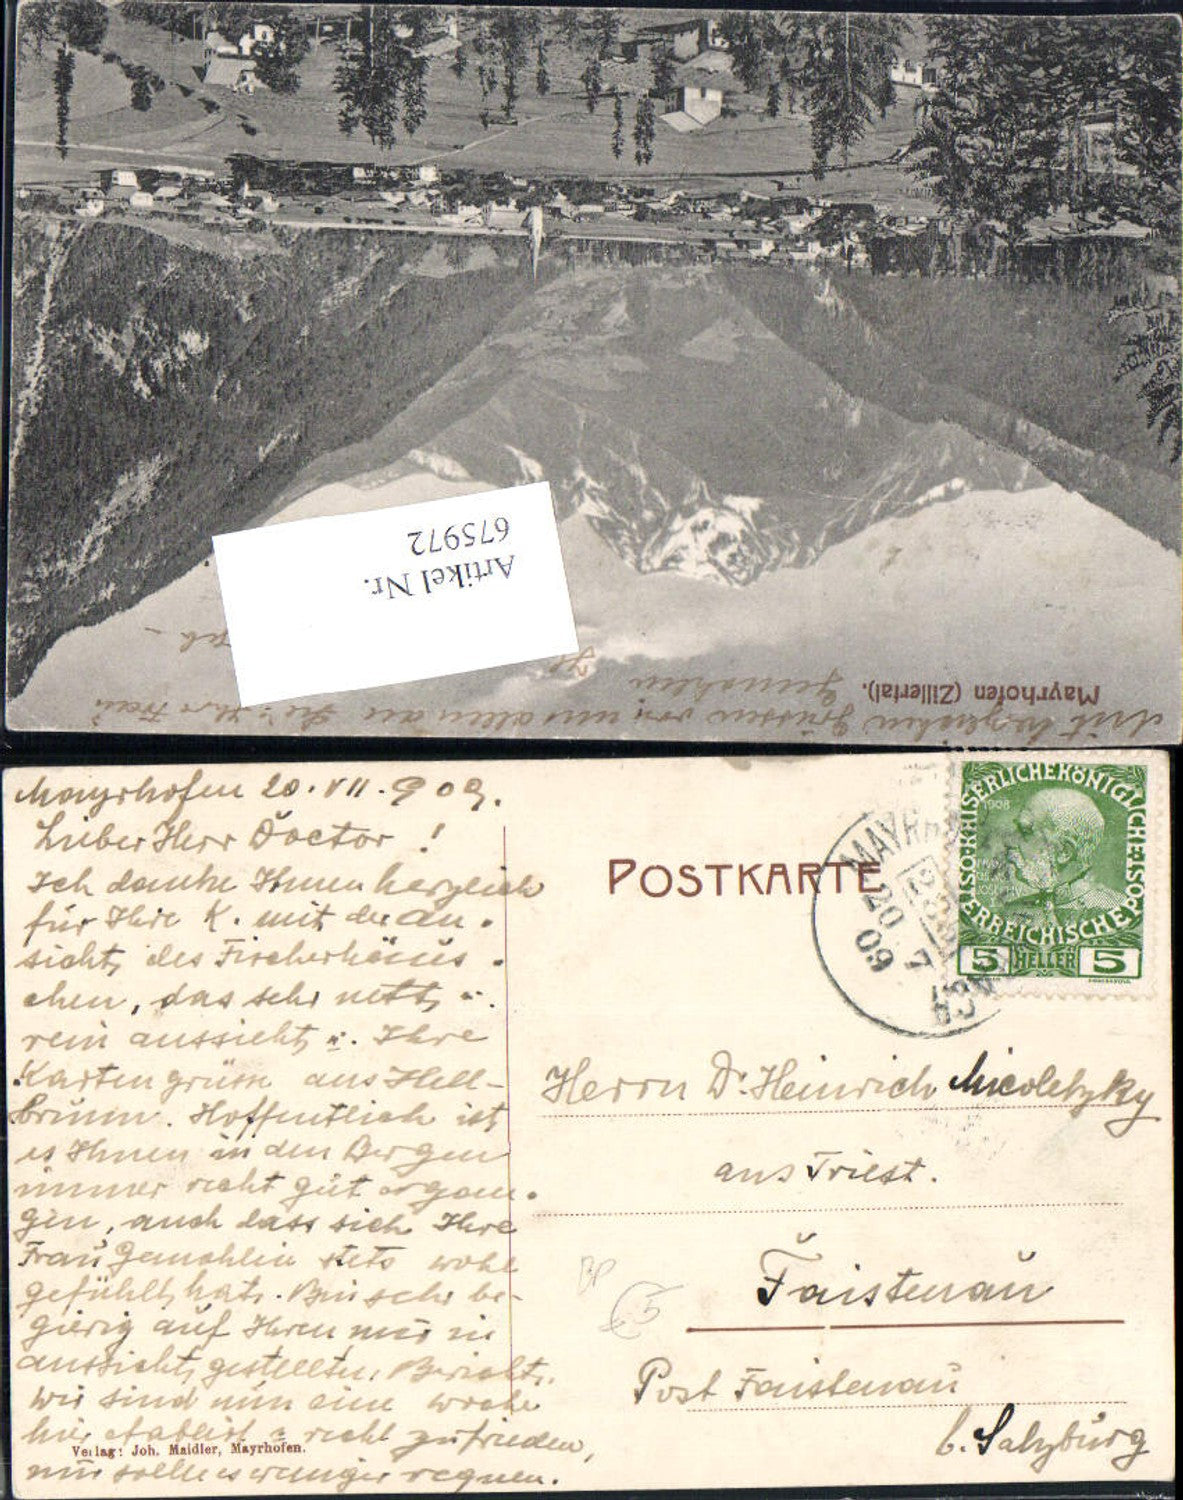 Mayrhofen (Zillertal).
Artikel Nr.
675972
Mit herzlichen Grüssen von uns allen an Sie u. Ihre Frau
Gemahlin
Mayrhofen 20. VII. 909.
Lieber Herr Doctor !
Ich danke Ihnen herzlich
für Ihre K. mit der An-
sicht des Fischerhäus-
chen, das sehr nett u.
rein aussieht, u. Ihre
Kartengrüsse aus Hell-
brunn. Hoffentlich ist
es Ihnen in den Bergen
immer recht gut ergan-
gen, auch dass sich Ihre
Frau Gemahlin stets wohl
gefühlt hat. Bin sehr be-
gierig auf Ihren mir in
aussicht gestellten Bericht.
Wir sind nun eine Woche
hier etablirt u. recht zufrieden,
nur sollte es weniger regnen.
Verlag: Joh. Maidler, Mayrhofen.
POSTKARTE
MAYRH
20 7
09
KAISERLICHE KÖNIGLICHE ÖSTERREICHISCHE POST
1908
5 HELLER 5
Herrn Dr. Heinrich Nicoletzky
aus Triest.
Faistenau
Post Faistenau
b. Salzburg
5